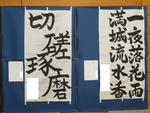 一夜落花雨
満城流水香
切磋
琢磨